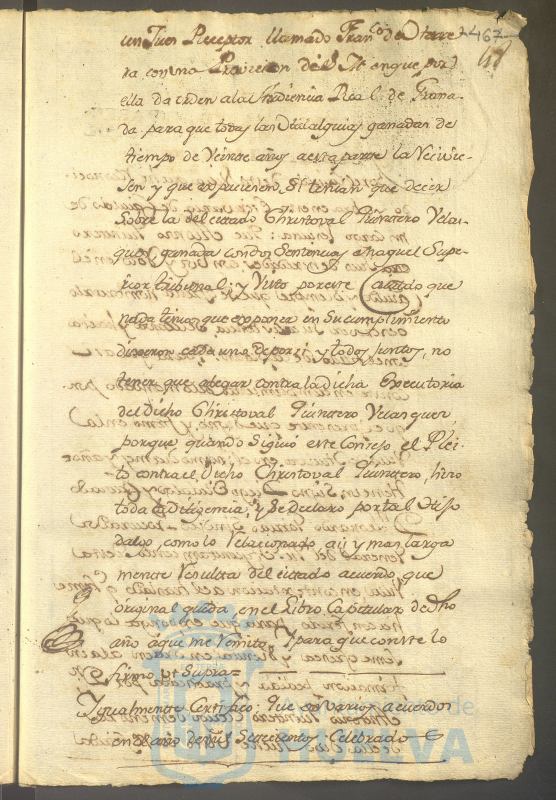 467
un Juez Receptor llamado Franco de Otare
ra con una Provicion de S. M. en que por
ella da orden a la Audiencia Real de Grana-
da para que todas las Vidalguias ganadas de
tiempo de Veinte años a esta parte la Vecivie-
sen y que expuciecen, si tenian que decir
Sobre la del citado Christoval Quintero Velas-
ques ganada con dos Sentencias en aquel Supe-
rior tribunal; y Visto por este Cavildo que
nada tenia que exponer en su cumplimiento
dixeron cada uno de por si y todos juntos, no
tener que alegar contra la dicha Executoria
del dicho Christoval Quintero Velasques,
porque quando Siguió este Consejo el Plei-
to contra el dicho Christoval Quintero, hizo
toda la diligencia, y Se declaro por tal Hijo
dalgo, como lo Relacionado asi y mas larga
mente Resulta del citado acuerdo, que
original queda en el Libro Capitular de dho
año á que me Remito, Y para que conste lo
firmo ut Supra=
Igualmente Certifico: Que en varios acuerdos
en el año de mil Seiscientos Celebrado
HUELVA